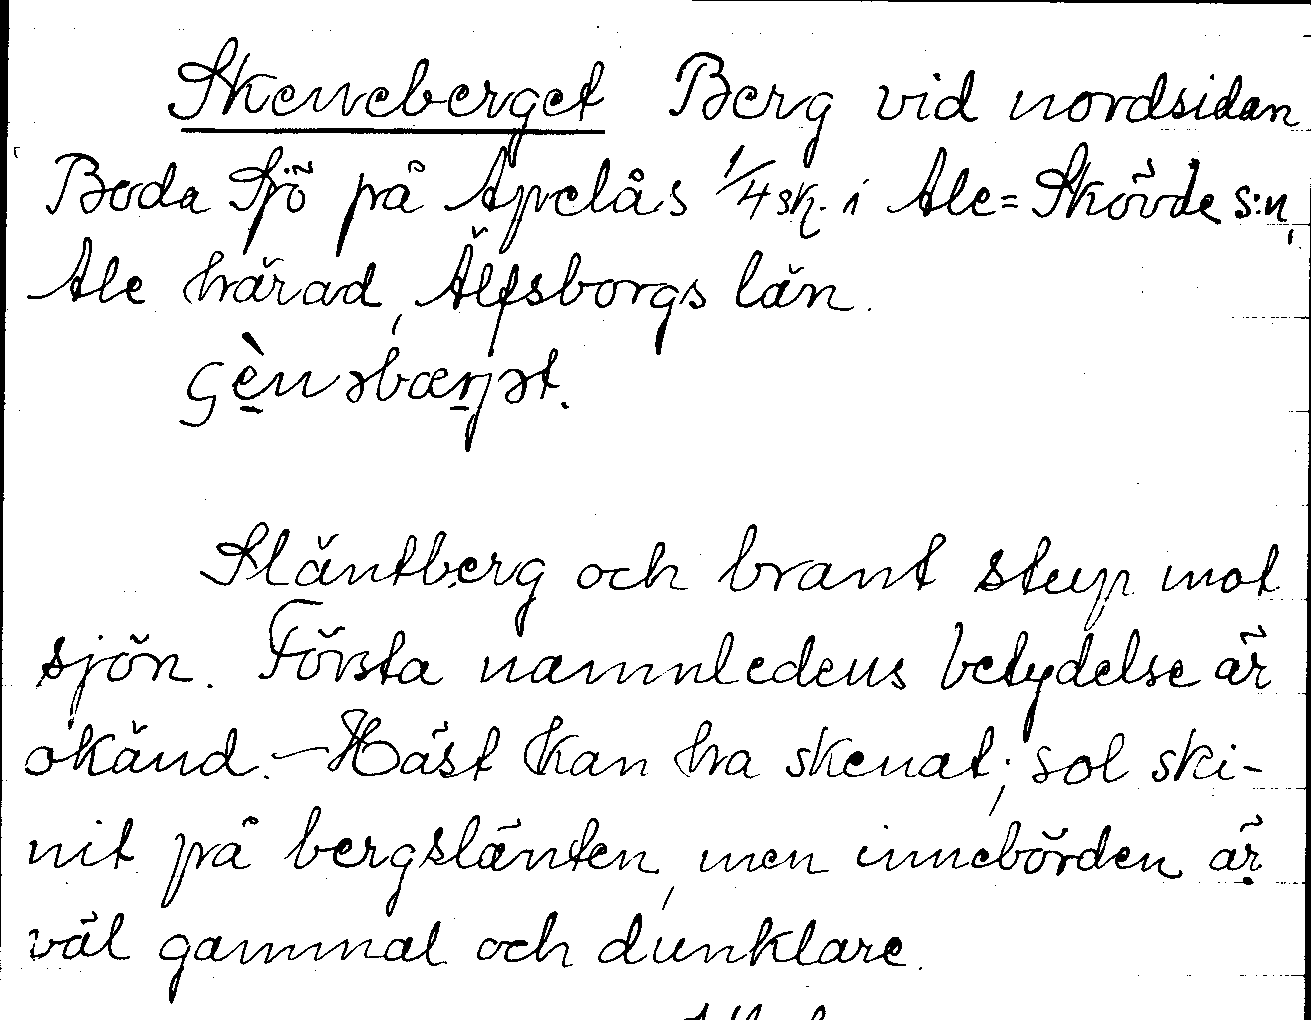 Skeneberget Berg vid nordsidan
Boda Sjö på Apelås 1/4 sk. i Ale=Skövde s:n,
Ale härad, Älfsborgs län.
Släntberg och brant stup mot
sjön. Första namnledens betydelse är
okänd. – Häst kan ha skenat; sol ski-
nit på bergslänten, men innebörden är
väl gammal och dunklare.